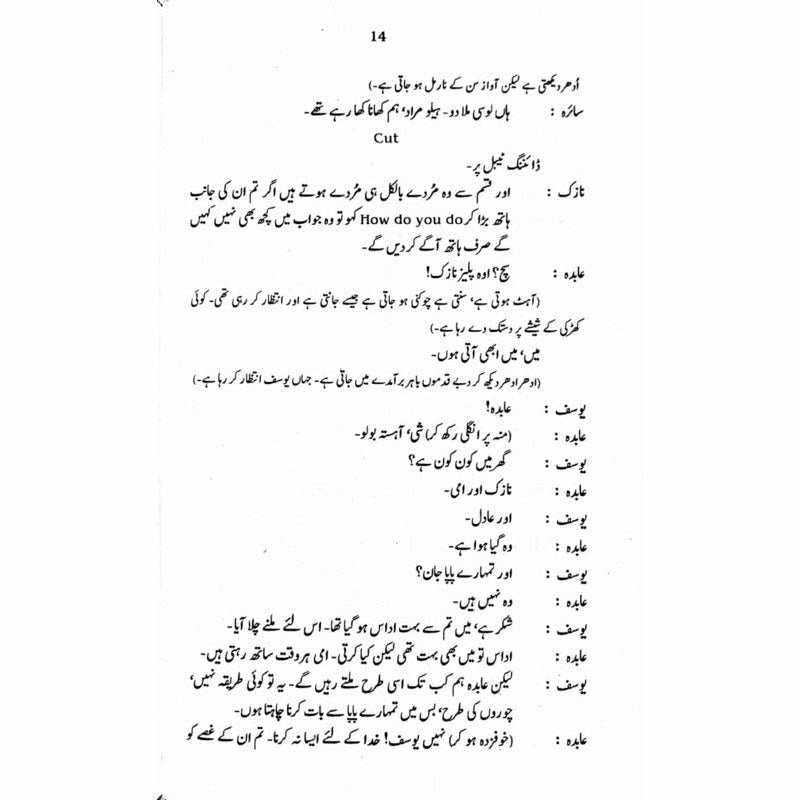 14
اُدھر دیکھتی ہے لیکن آواز سن کے نارمل ہو جاتی ہے۔)
سائرہ : ہاں لوسی ملا دو۔ ہیلو مراد، ہم کھانا کھا رہے تھے۔
Cut
ڈائننگ ٹیبل پر۔
نازک : اور قسم سے وہ مُردے بالکل ہی مُردے ہوتے ہیں اگر تم ان کی جانب
ہاتھ بڑا کر How do you do کہو تو وہ جواب میں کچھ بھی نہیں کہیں
گے صرف ہاتھ آگے کر دیں گے۔
عابدہ : سچ؟ اوہ پلیز نازک!
(آہٹ ہوتی ہے، سنتی ہے چوکنی ہو جاتی ہے جیسے جانتی ہے اور انتظار کر رہی تھی۔ کوئی
کھڑکی کے شیشے پر دستک دے رہا ہے۔)
میں، میں ابھی آتی ہوں۔
(ادھر ادھر دیکھ کر دبے قدموں باہر برآمدے میں جاتی ہے۔ جہاں یوسف انتظار کر رہا ہے۔)
یوسف : عابدہ!
عابدہ : (منہ پر انگلی رکھ کر) شی، آہستہ بولو۔
یوسف : گھر میں کون کون ہے؟
عابدہ : نازک اور امی۔
یوسف : اور عادل۔
عابدہ : وہ گیا ہوا ہے۔
یوسف : اور تمہارے پاپا جان؟
عابدہ : وہ نہیں ہیں۔
یوسف : شکر ہے، میں تم سے بہت اداس ہو گیا تھا۔ اس لئے ملنے چلا آیا۔
عابدہ : اداس تو میں بھی بہت تھی لیکن کیا کرتی۔ امی ہر وقت ساتھ رہتی ہیں۔
یوسف : لیکن عابدہ ہم کب تک اسی طرح ملتے رہیں گے۔ یہ تو کوئی طریقہ نہیں،
چوروں کی طرح، بس میں تمہارے پاپا سے بات کرنا چاہتا ہوں۔
عابدہ : (خوفزدہ ہو کر) نہیں یوسف! خدا کے لئے ایسا نہ کرنا۔ تم ان کے غصے کو